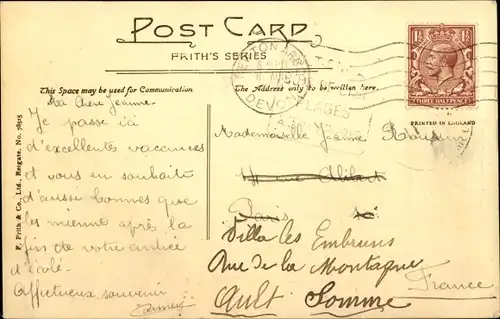 POST CARD
FRITH'S SERIES
This Space may be used for Communication
The Address only to be written here.
1½ 1½
THREE HALFPENCE
PRINTED IN ENGLAND
DEVON
F. Frith & Co., Ltd., Reigate. No.
Ma chère Jeanne
Je passe ici
d'excellentes vacances
et vous en souhaite
d'aussi bonnes que
les mienne après la
fin de votre année
d'école.
Affectueux souvenir
Mademoiselle Jeanne
rue Alibert
Paris 10e
Villa les Embruns
Rue de la Montagne
Ault Somme
France